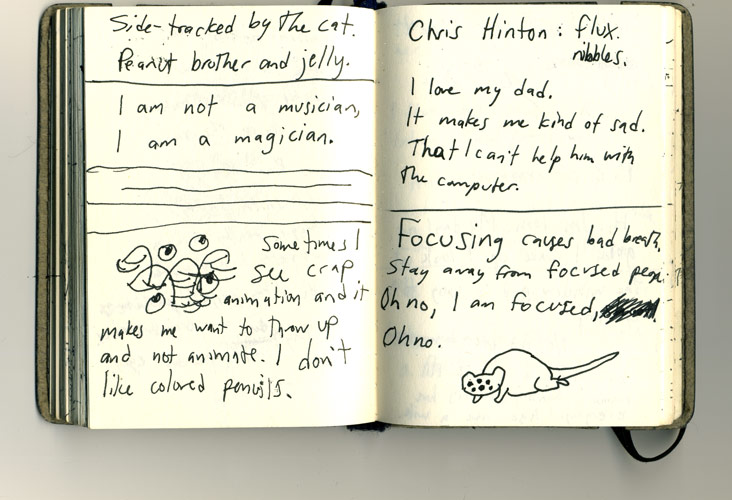 Side-tracked by the cat.
Peanut brother and jelly.
I am not a musician,
I am a magician.
Sometimes I
see crap
animation and it
makes me want to throw up
and not animate. I don't
like colored pencils.
Chris Hinton: flux.
nibbles.
I love my dad.
It makes me kind of sad.
That I can't help him with
the computer.
Focusing causes bad breath.
Stay away from focused
Oh no, I am focused,
Oh no.